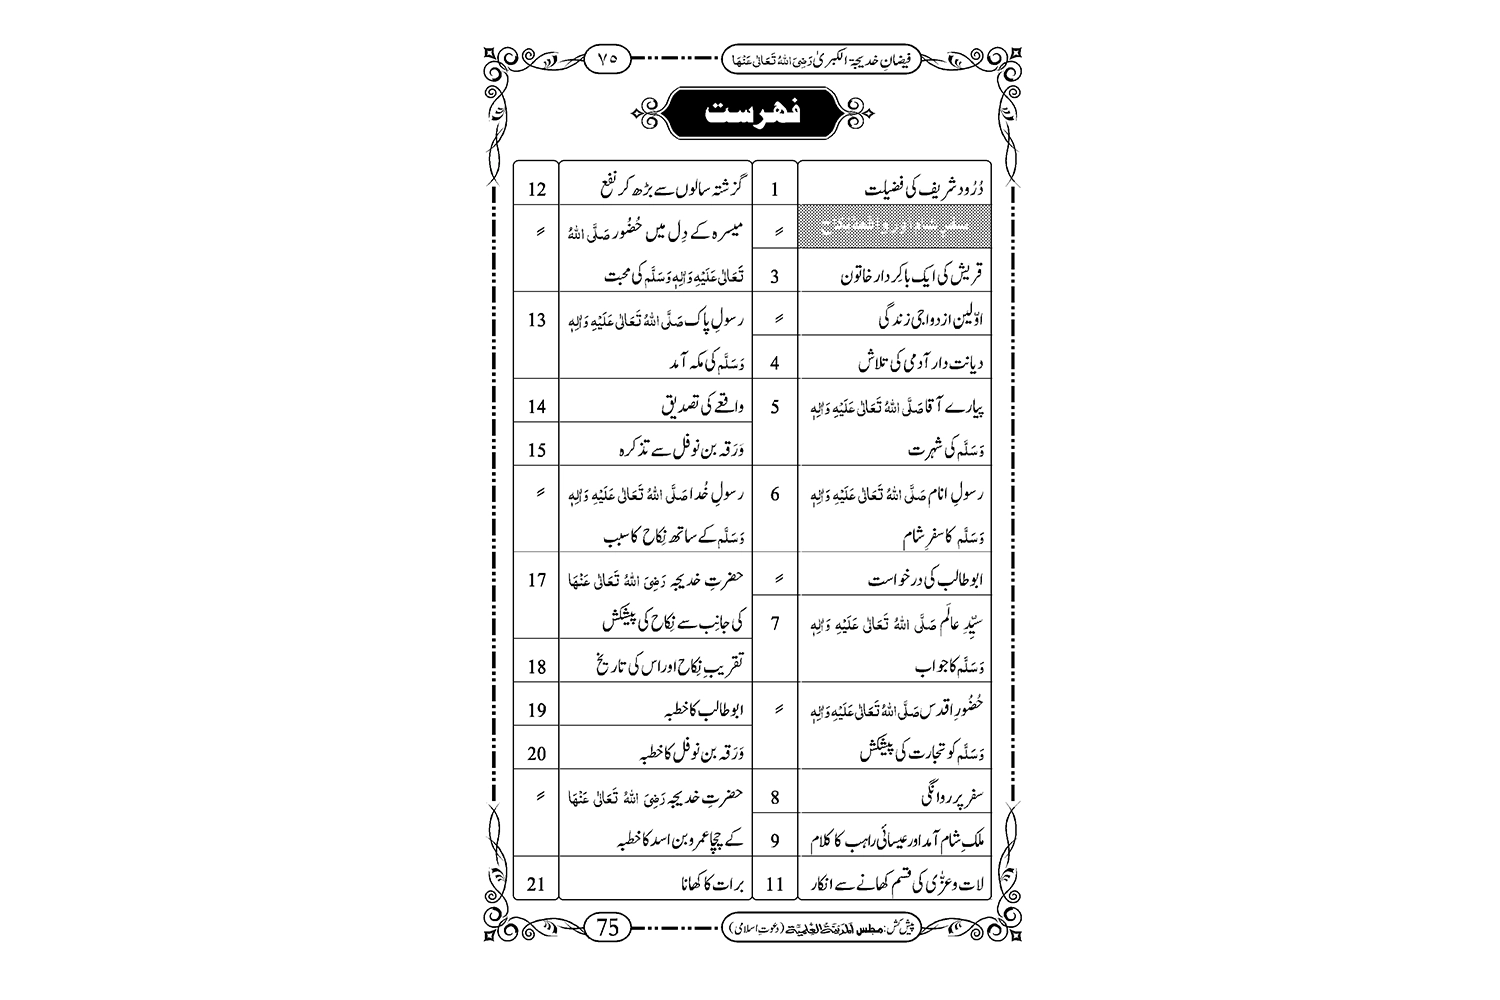 فیضانِ خدیجۃ الکبریٰ رَضِیَ اللہُ تَعَالٰی عَنْہَا ٧٥
فہرست
دُرُود شریف کی فضیلت 1
سفرِ شام اور واقعۂ نکاح 〃
قریش کی ایک باکِردار خاتون 3
اوّلین ازدواجی زندگی 〃
دیانت دار آدمی کی تلاش 4
پیارے آقا صَلَّی اللہُ تَعَالٰی عَلَیْہِ وَاٰلِہٖ 5
وَسَلَّم کی شہرت
رسولِ انام صَلَّی اللہُ تَعَالٰی عَلَیْہِ وَاٰلِہٖ 6
وَسَلَّم کا سفرِ شام
ابوطالب کی درخواست 〃
سیِّدِ عالَم صَلَّی اللہُ تَعَالٰی عَلَیْہِ وَاٰلِہٖ 7
وَسَلَّم کا جواب
حُضُورِ اقدس صَلَّی اللہُ تَعَالٰی عَلَیْہِ وَاٰلِہٖ 〃
وَسَلَّم کو تجارت کی پیشکش
سفر پر روانگی 8
ملکِ شام آمد اور عیسائی راہب کا کلام 9
لات و عزّٰی کی قسم کھانے سے انکار 11
گزشتہ سالوں سے بڑھ کر نفع 12
میسرہ کے دِل میں حُضُور صَلَّی اللہُ 〃
تَعَالٰی عَلَیْہِ وَاٰلِہٖ وَسَلَّم کی محبت
رسولِ پاک صَلَّی اللہُ تَعَالٰی عَلَیْہِ وَاٰلِہٖ 13
وَسَلَّم کی مکہ آمد
واقعے کی تصدیق 14
وَرَقہ بن نوفل سے تذکرہ 15
رسولِ خُدا صَلَّی اللہُ تَعَالٰی عَلَیْہِ وَاٰلِہٖ 〃
وَسَلَّم کے ساتھ نِکاح کا سبب
حضرتِ خدیجہ رَضِیَ اللہُ تَعَالٰی عَنْہَا 17
کی جانِب سے نِکاح کی پیشکش
تقریبِ نِکاح اور اس کی تاریخ 18
ابوطالب کا خطبہ 19
وَرَقہ بن نوفل کا خطبہ 20
حضرتِ خدیجہ رَضِیَ اللہُ تَعَالٰی عَنْہَا 〃
کے چچا عمرو بن اسد کا خطبہ
برات کا کھانا 21
پیش کش: مجلس المدینۃ العلمیۃ (دعوتِ اسلامی) 75